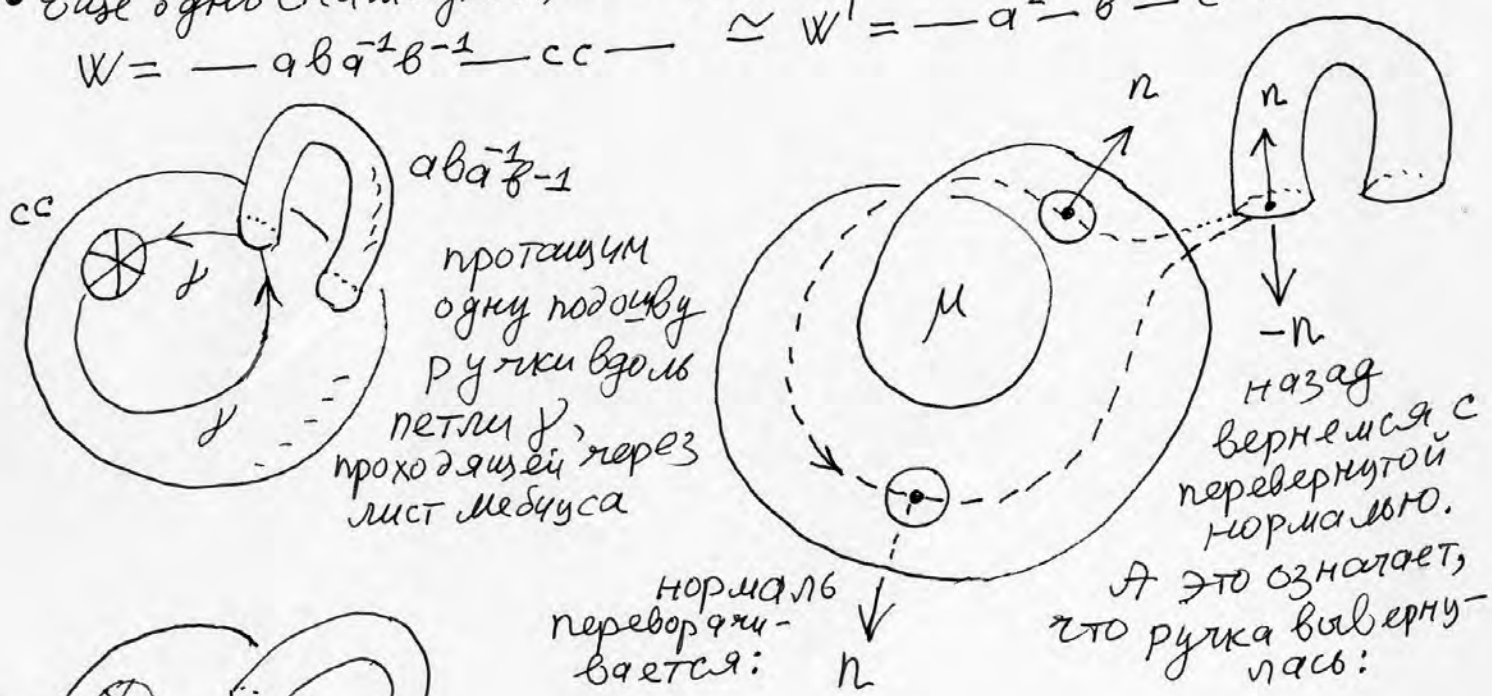 • еще одно
W = — aba⁻¹b⁻¹ — cc — ≃ W' = — a² — b — c
cc
aba⁻¹b-1
γ
γ
протащим
одну подошву
ручки вдоль
петли γ,
проходящей через
лист Мебиуса
n
n
μ
-n
назад
вернемся с
перевернутой
нормалью.
А это означает,
что ручка выверну-
лась:
нормаль
перевора-
чи-
вается:
n